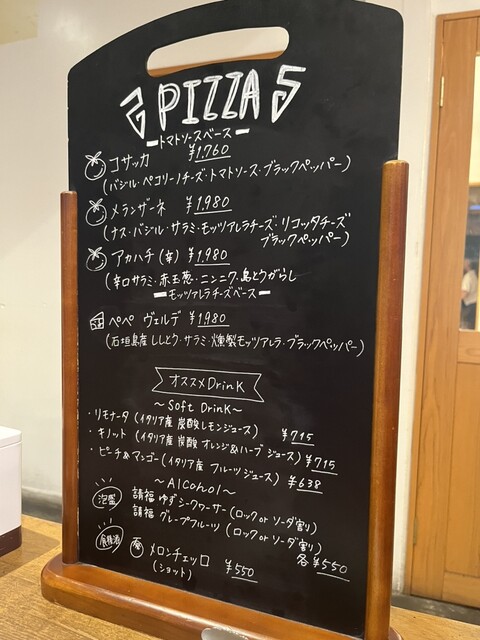 PIZZA
トマトソースベース
コサッカ ¥1,760
(バジル・ペコリーノチーズ・トマトソース・ブラックペッパー)
メランザーネ ¥1,980
(ナス・バジル・サラミ・モッツァレラチーズ・リコッタチーズ
ブラックペッパー)
アカハチ (辛) ¥1,980
(辛口サラミ・赤玉葱・ニンニク・島とうがらし
モッツァレラチーズベース
ペペ ヴェルデ ¥1,980
(石垣島産 ししとう・サラミ・燻製モッツァレラ・ブラックペッパー)
オススメDrinK
~Soft DrinK~
・リモナータ (イタリア産 炭酸レモンジュース) ¥715
・キノット (イタリア産 炭酸 オレンジ&ハーブ ジュース) ¥715
・ピーチ&マンゴー (イタリア産 フルーツジュース) ¥638
~Alcohol~
泡盛 請福 ゆずシークワーサー (ロック or ソーダ割り)
請福 グレープフルーツ (ロック or ソーダ割り)
各 ¥550
食後酒 メロンチェッロ ¥550
(ショット)